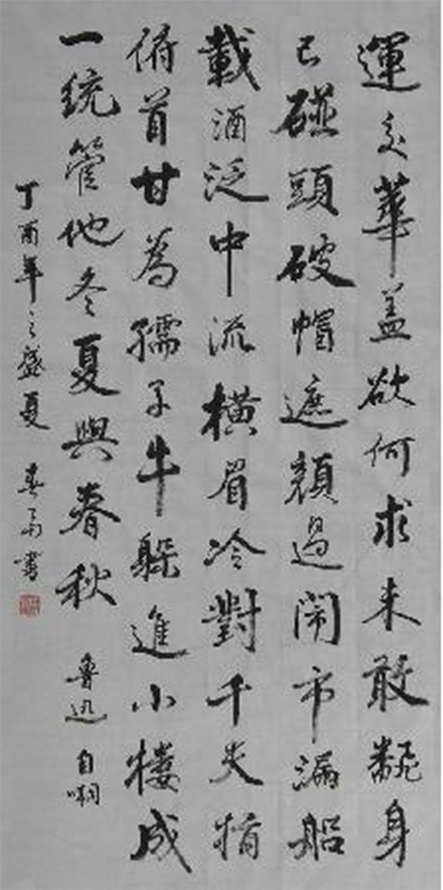 運交華盖欲何求未敢翻身
已碰頭破帽遮顏過鬧市漏船
載酒泛中流橫眉冷對千夫指
俯首甘為孺子牛躲進小樓成
一統管他冬夏與春秋 魯迅 自嘲
丁酉年之盛夏 春 書